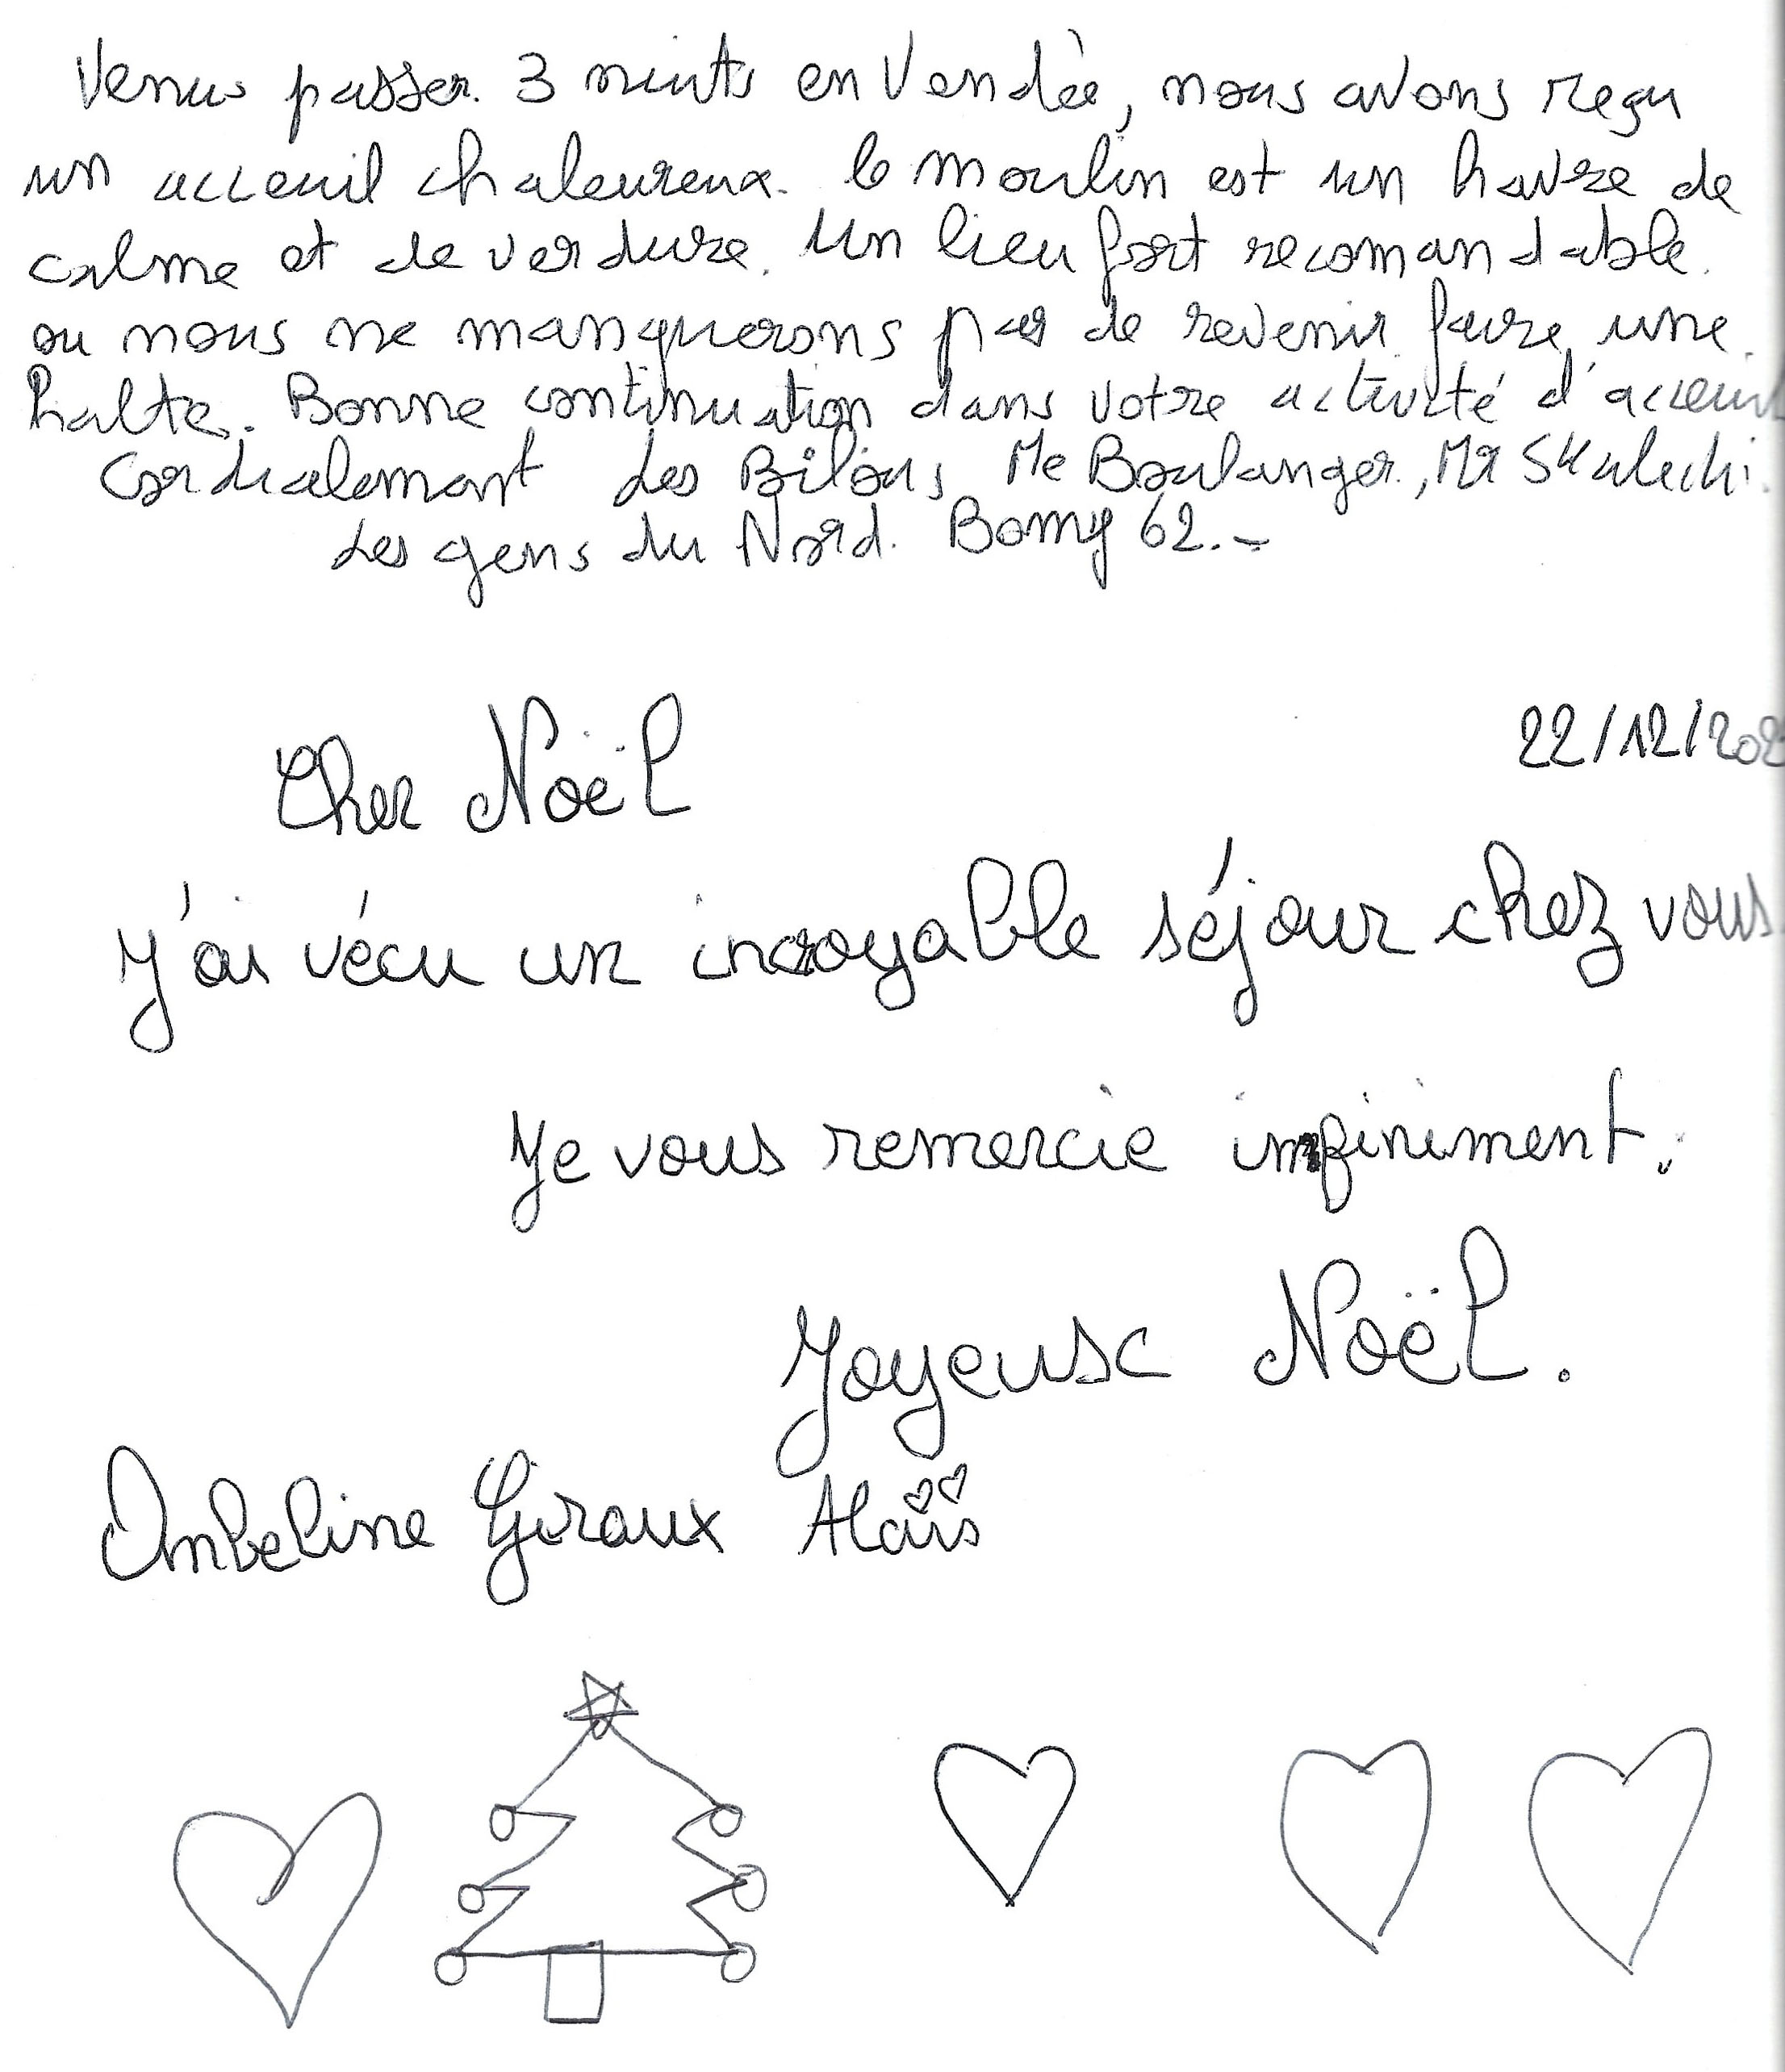 Venus passer 3 nuits en Vendée, nous avons reçu
un acceuil chaleureux. le moulin est un havre de
calme et de verdure. Un lieu fort recomandable.
ou nous ne manquerons pas de revenir faire une
halte. Bonne continuation dans votre activité d'acceuil
Cordialement les Bilous, Me Boulanger, Mr
Les gens du Nord. Bomy 62.-
22/12/202
Cher Noël
J'ai vécu un incroyable séjour chez vous
Je vous remercie infiniment.
Joyeuse Noël.
Ombeline Giraux Alaïs